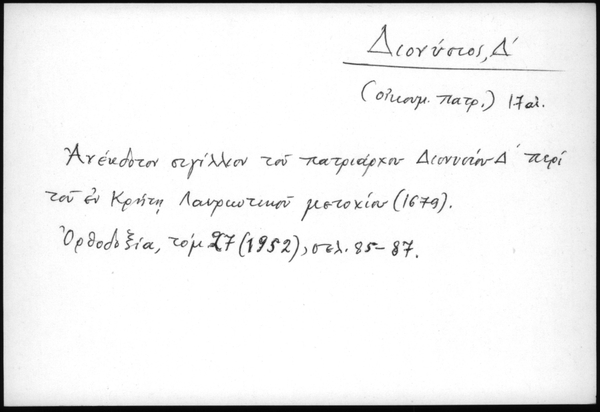 Διονύσιος, Δ'
(οἰκουμ. πατρ.) 17 αἰ.
Ἀνέκδοτον σιγίλλιον τοῦ πατριάρχου Διονυσίου Δ' περὶ
τοῦ ἐν Κρήτῃ Λαυριωτικοῦ μετοχίου (1679).
Ὀρθοδοξία, τόμ 27 (1952), σελ. 85-87.